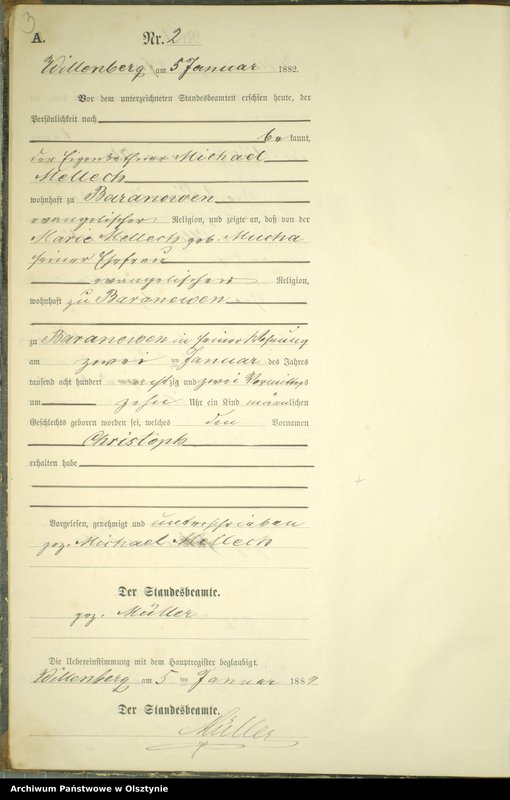 3
A.
Nr. 2
Willenberg am 5 Januar 1882.
Vor dem unterzeichneten Standesbeamten erschien heute, der
Persönlichkeit nach
be kannt,
der Eigenkäthner Michael
Mellech
wohnhaft zu Baranowen
evangelischer Religion, und zeigte an, daß von der
Marie Mellech geb. Mucha
seiner Ehefrau
evangelischer Religion,
wohnhaft zu Baranowen
zu Baranowen in seiner Wohnung
am zwei ten Januar des Jahres
tausend acht hundert acht zig und zwei Vormittags
um zehn Uhr ein Kind männlichen
Geschlechts geboren worden sei, welches den Vornamen
Christoph
erhalten habe
Vorgelesen, genehmigt und unterschrieben
gez. Michael Mellech
Der Standesbeamte.
gez. Müller
Die Uebereinstimmung mit dem Hauptregister beglaubigt.
Willenberg am 5 ten Januar 1882.
Der Standesbeamte.
Müller
Archiwum Państwowe w Olsztynie